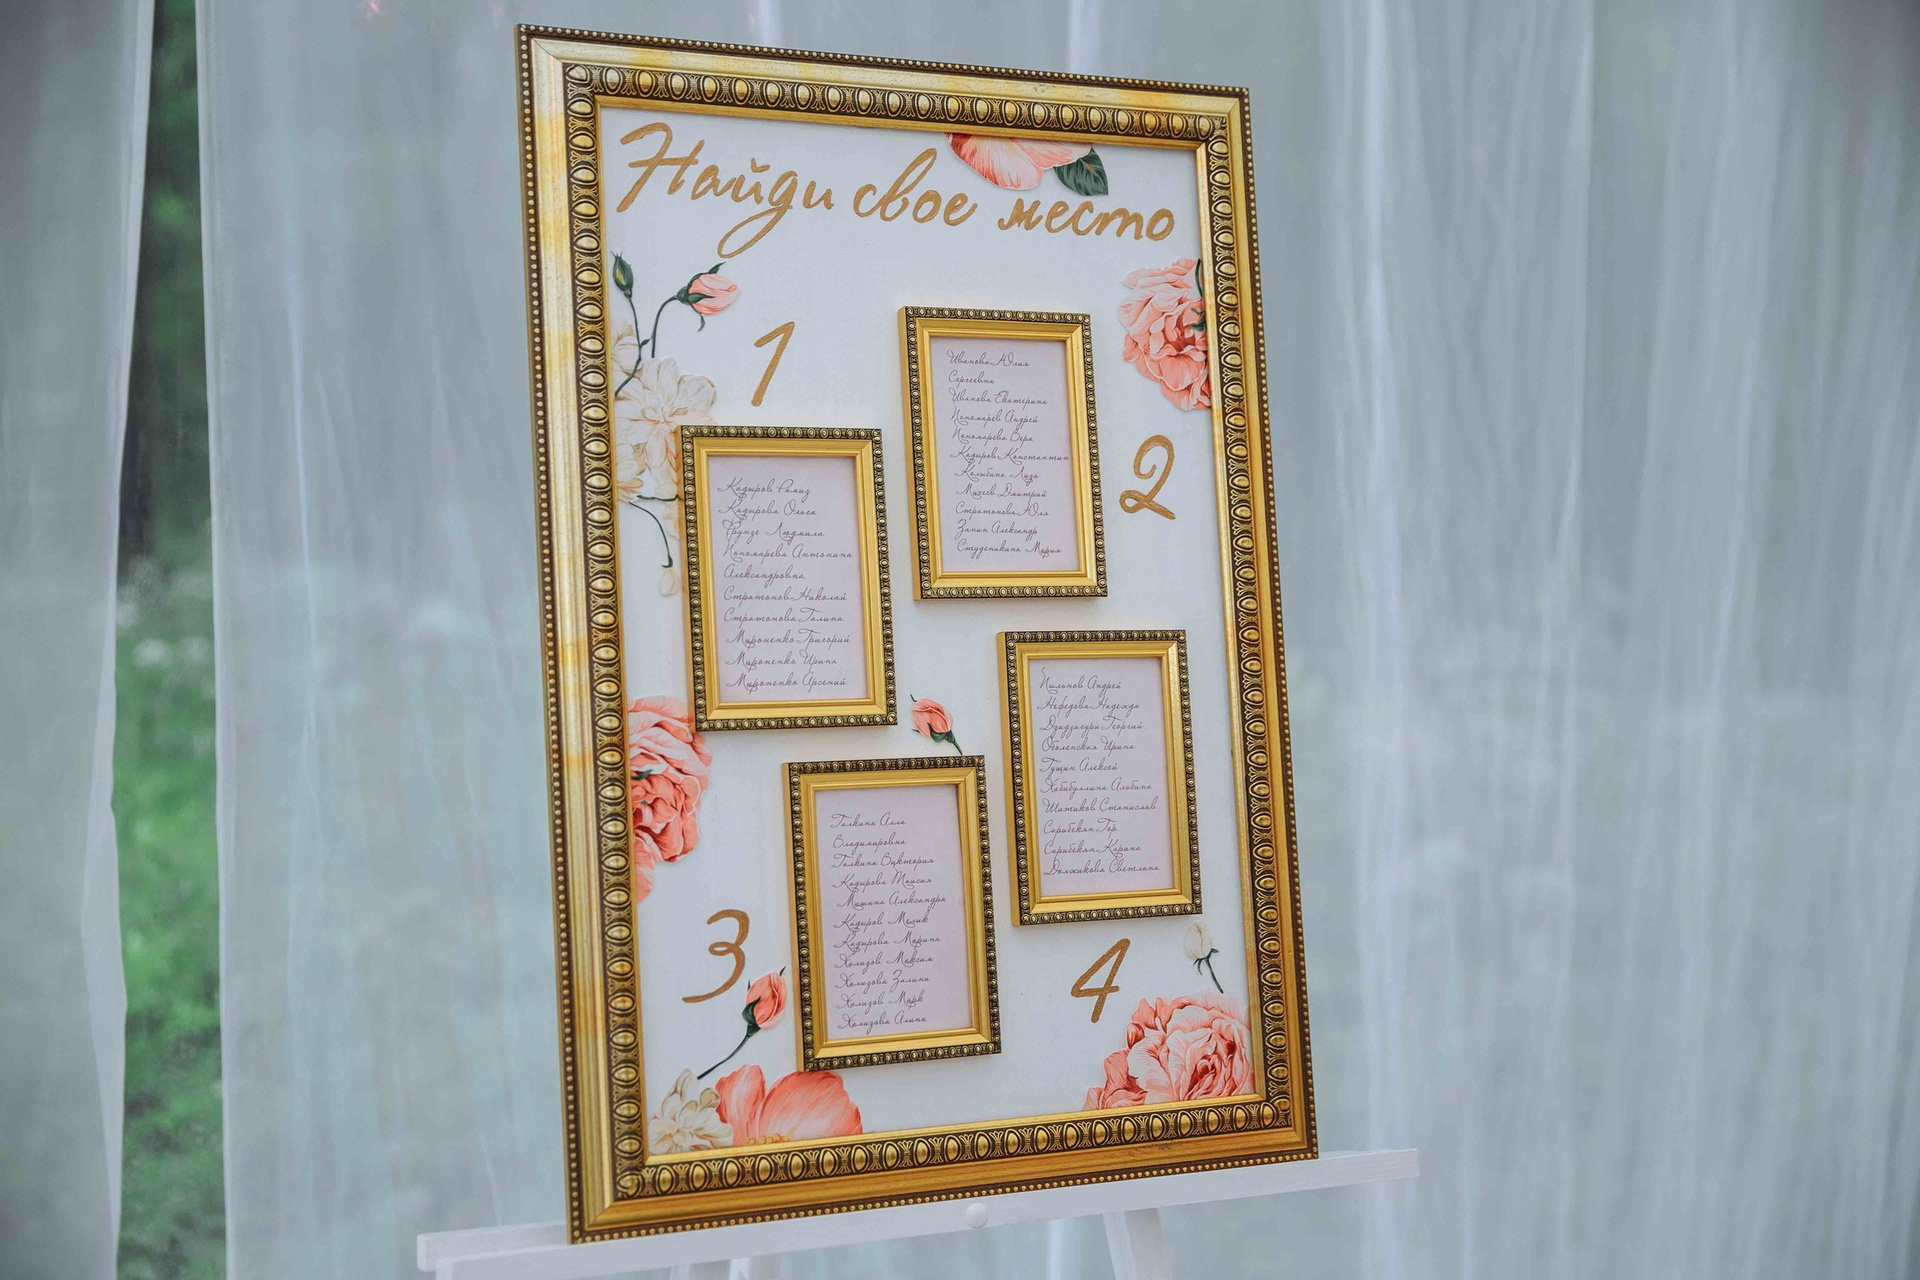 Найди свое место
1
Кадыров Рамиз
Кадырова Ольга
Фрунзе Людмила
Пономарева Антонина
Александровна
Стратонов Николай
Стратонова Галина
Мироненко Григорий
Мироненко Ирина
Мироненко Арсений
2
Иванова Юлия
Сергеевна
Иванова Екатерина
Пономарев Андрей
Пономарева Вера
Кадыров Константин
Колыбина Лиза
Михеев Дмитрий
Стратонова Юля
Занин Александр
Студеникина Мария
3
Галкина Алла
Владимировна
Галкина Виктория
Кадырова Таисия
Мишина Александра
Кадыров Мелик
Кадырова Марина
Холизов Максим
Холизова Залина
Холизов Марк
Холизова Алина
4
Пыльнов Андрей
Нефедова Надежда
Дзидзигури Георгий
Оболенская Ирина
Гущин Алексей
Хабибуллина Альбина
Шитиков Станислав
Сарибекян Гор
Сарибекян Карина
Должикова Светлана